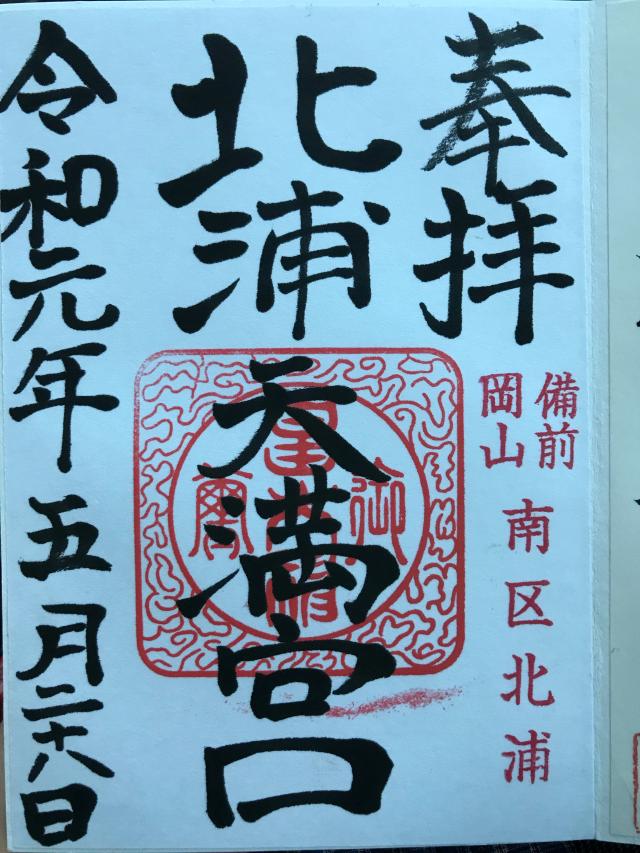 奉拝
備前
岡山
南区北浦
北浦天満宮
令和元年五月二十八日